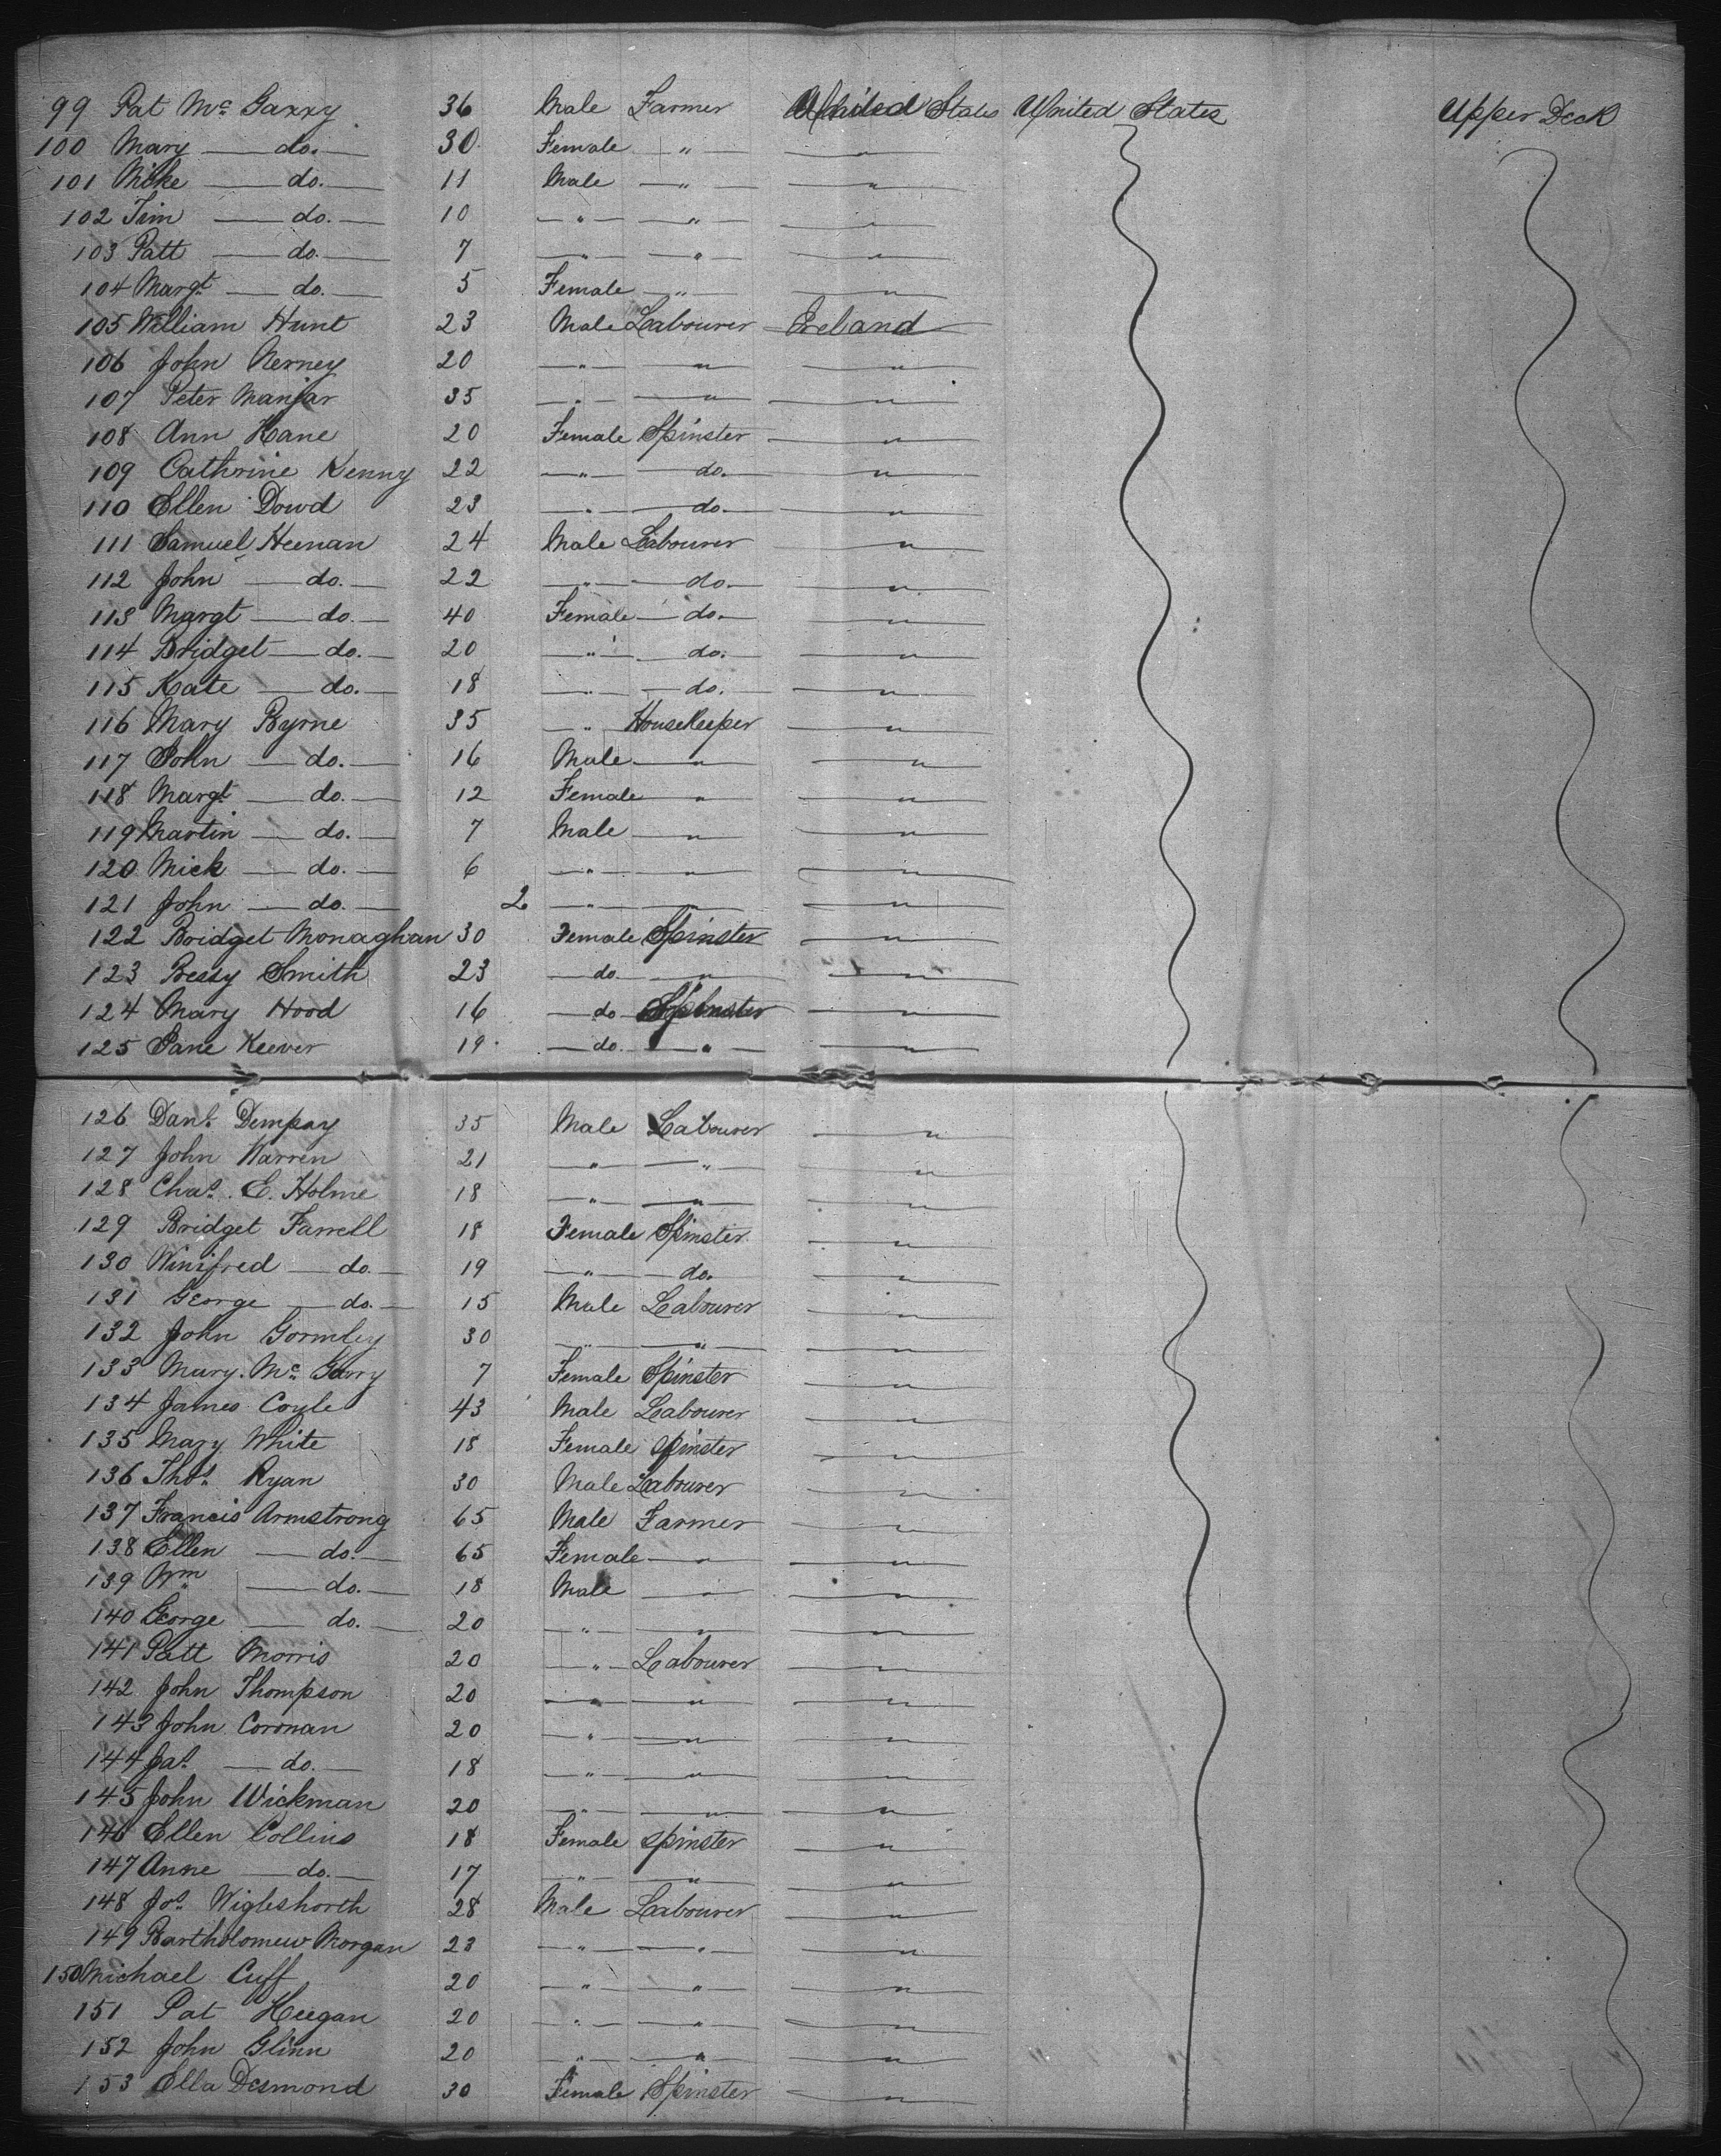 99 Pat Mc Garry 36 Male Farmer United States United States Upper Deck
100 Mary — do. — 30 Female — " — — " —
101 Mike — do. — 11 Male — " — — " —
102 Tim — do. — 10 — " — — " — — " —
103 Patt — do. — 7 — " — — " — — " —
104 Margt — do. — 5 Female — " — — " —
105 William Hunt 23 Male Labourer Ireland
106 John Nerney 20 — " — — " — — " —
107 Peter 35 — " — — " — — " —
108 Ann Kane 20 Female Spinster — " —
109 Cathrine Kenny 22 — " — — do. — — " —
110 Ellen Dowd 23 — " — — do. — — " —
111 Samuel Heenan 24 Male Labourer — " —
112 John — do. — 22 — " — — do. — — " —
113 Margt — do. — 40 Female — do. — — " —
114 Bridget — do. — 20 — " — — do. — — " —
115 Kate — do. — 18 — " — — do. — — " —
116 Mary Byrne 35 — " Housekeeper — " —
117 John — do. — 16 Male — " — — " —
118 Margt — do. — 12 Female — " — — " —
119 Martin — do. — 7 Male — " — — " —
120 Mick — do. — 6 — " — — " — — " —
121 John — do. — 2 — " — — " — — " —
122 Bridget Monaghan 30 Female Spinster — " —
123 Bessy Smith 23 — do. — " — — " —
124 Mary Hood 16 — do Spinster — " —
125 Jane Keever 19 — do. — " — — " —
126 Danl. Dempsy 35 Male Labourer — " —
127 John Warren 21 — " — — " — — " —
128 Chas. E. Holme 18 — " — — " — — " —
129 Bridget Farrell 18 Female Spinster — " —
130 Winifred — do. — 19 — " — — do. — " —
131 George — do. — 15 Male Labourer — " —
132 John Gormley 30 — " — — " — — " —
133 Mary. Mc Garry 7 Female Spinster — " —
134 James Coyle 43 Male Labourer — " —
135 Mary White 18 Female spinster — " —
136 Thos. Ryan 30 Male Labourer — " —
137 Francis Armstrong 65 Male Farmer — " —
138 Ellen — do. — 65 Female — " — — " —
139 Wm — do. — 18 Male — " — — " —
140 George — do. — 20 — " — — " — — " —
141 Patt Morris 20 — " — Labourer — " —
142 John Thompson 20 — " — — " — — " —
143 John Coronan 20 — " — — " — — " —
144 Jas. — do. — 18 — " — — " — — " —
145 John Wickman 20 — " — — " — — " —
146 Ellen Collins 18 Female spinster — " —
147 Anne — do. — 17 — " — — " — — " —
148 Jos. Wigleshorth 28 Male Labourer — " —
149 Bartholomew Morgan 23 — " — — " — — " —
150 Michael Cuff 20 — " — — " — — " —
151 Pat Keegan 20 — " — — " — — " —
152 John Glinn 20 — " — — " — — " —
153 Ella Desmond 30 Female Spinster — " —